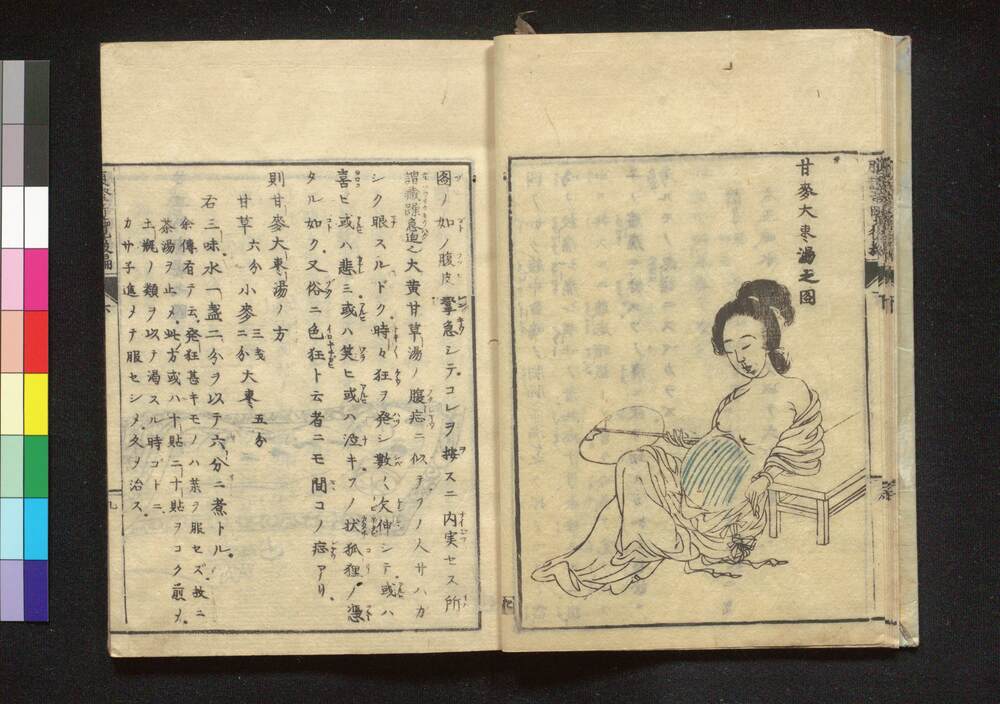 甘麥大棗湯之圖
圖ノ如ノ腹皮攣急シテコレヲ按スニ内実セス所
謂臓躁急迫之大黄甘草湯ノ腹症ニ似テヲノ人サハカ
シク眼スルドク時々狂ヲ発シ數〱欠伸シテ或ハ
喜ヒ或ハ悲ミ或ハ笑ヒ或ハ泣キヲノ状狐狸ノ憑
タル如ク又俗ニ色狂ト云者ニモ間コノ症アリ
則甘麥大棗湯ノ方
甘草 六分 小麥 三戔 大棗 五分
右三味水一盞二分ヲ以テ六分ニ煮トル
余傳有テ云発狂甚キモノハ薬ヲ服セズ故ニ
茶湯ヲ止メ此方或ハ十貼二十貼ヲコク煎メ
土瓶ノ類ヲ以テ渇スル時ゴトニ
カサ子進メテ服セシメ久ヲ治ス